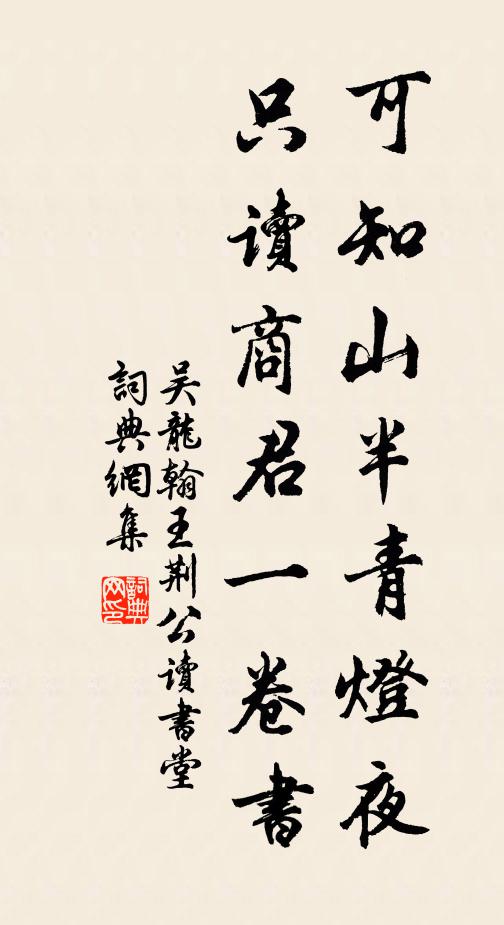 可知山半青燈夜
只讀商君一卷書
吴龍翰王荆公讀書堂
詞典網集
詞典网印